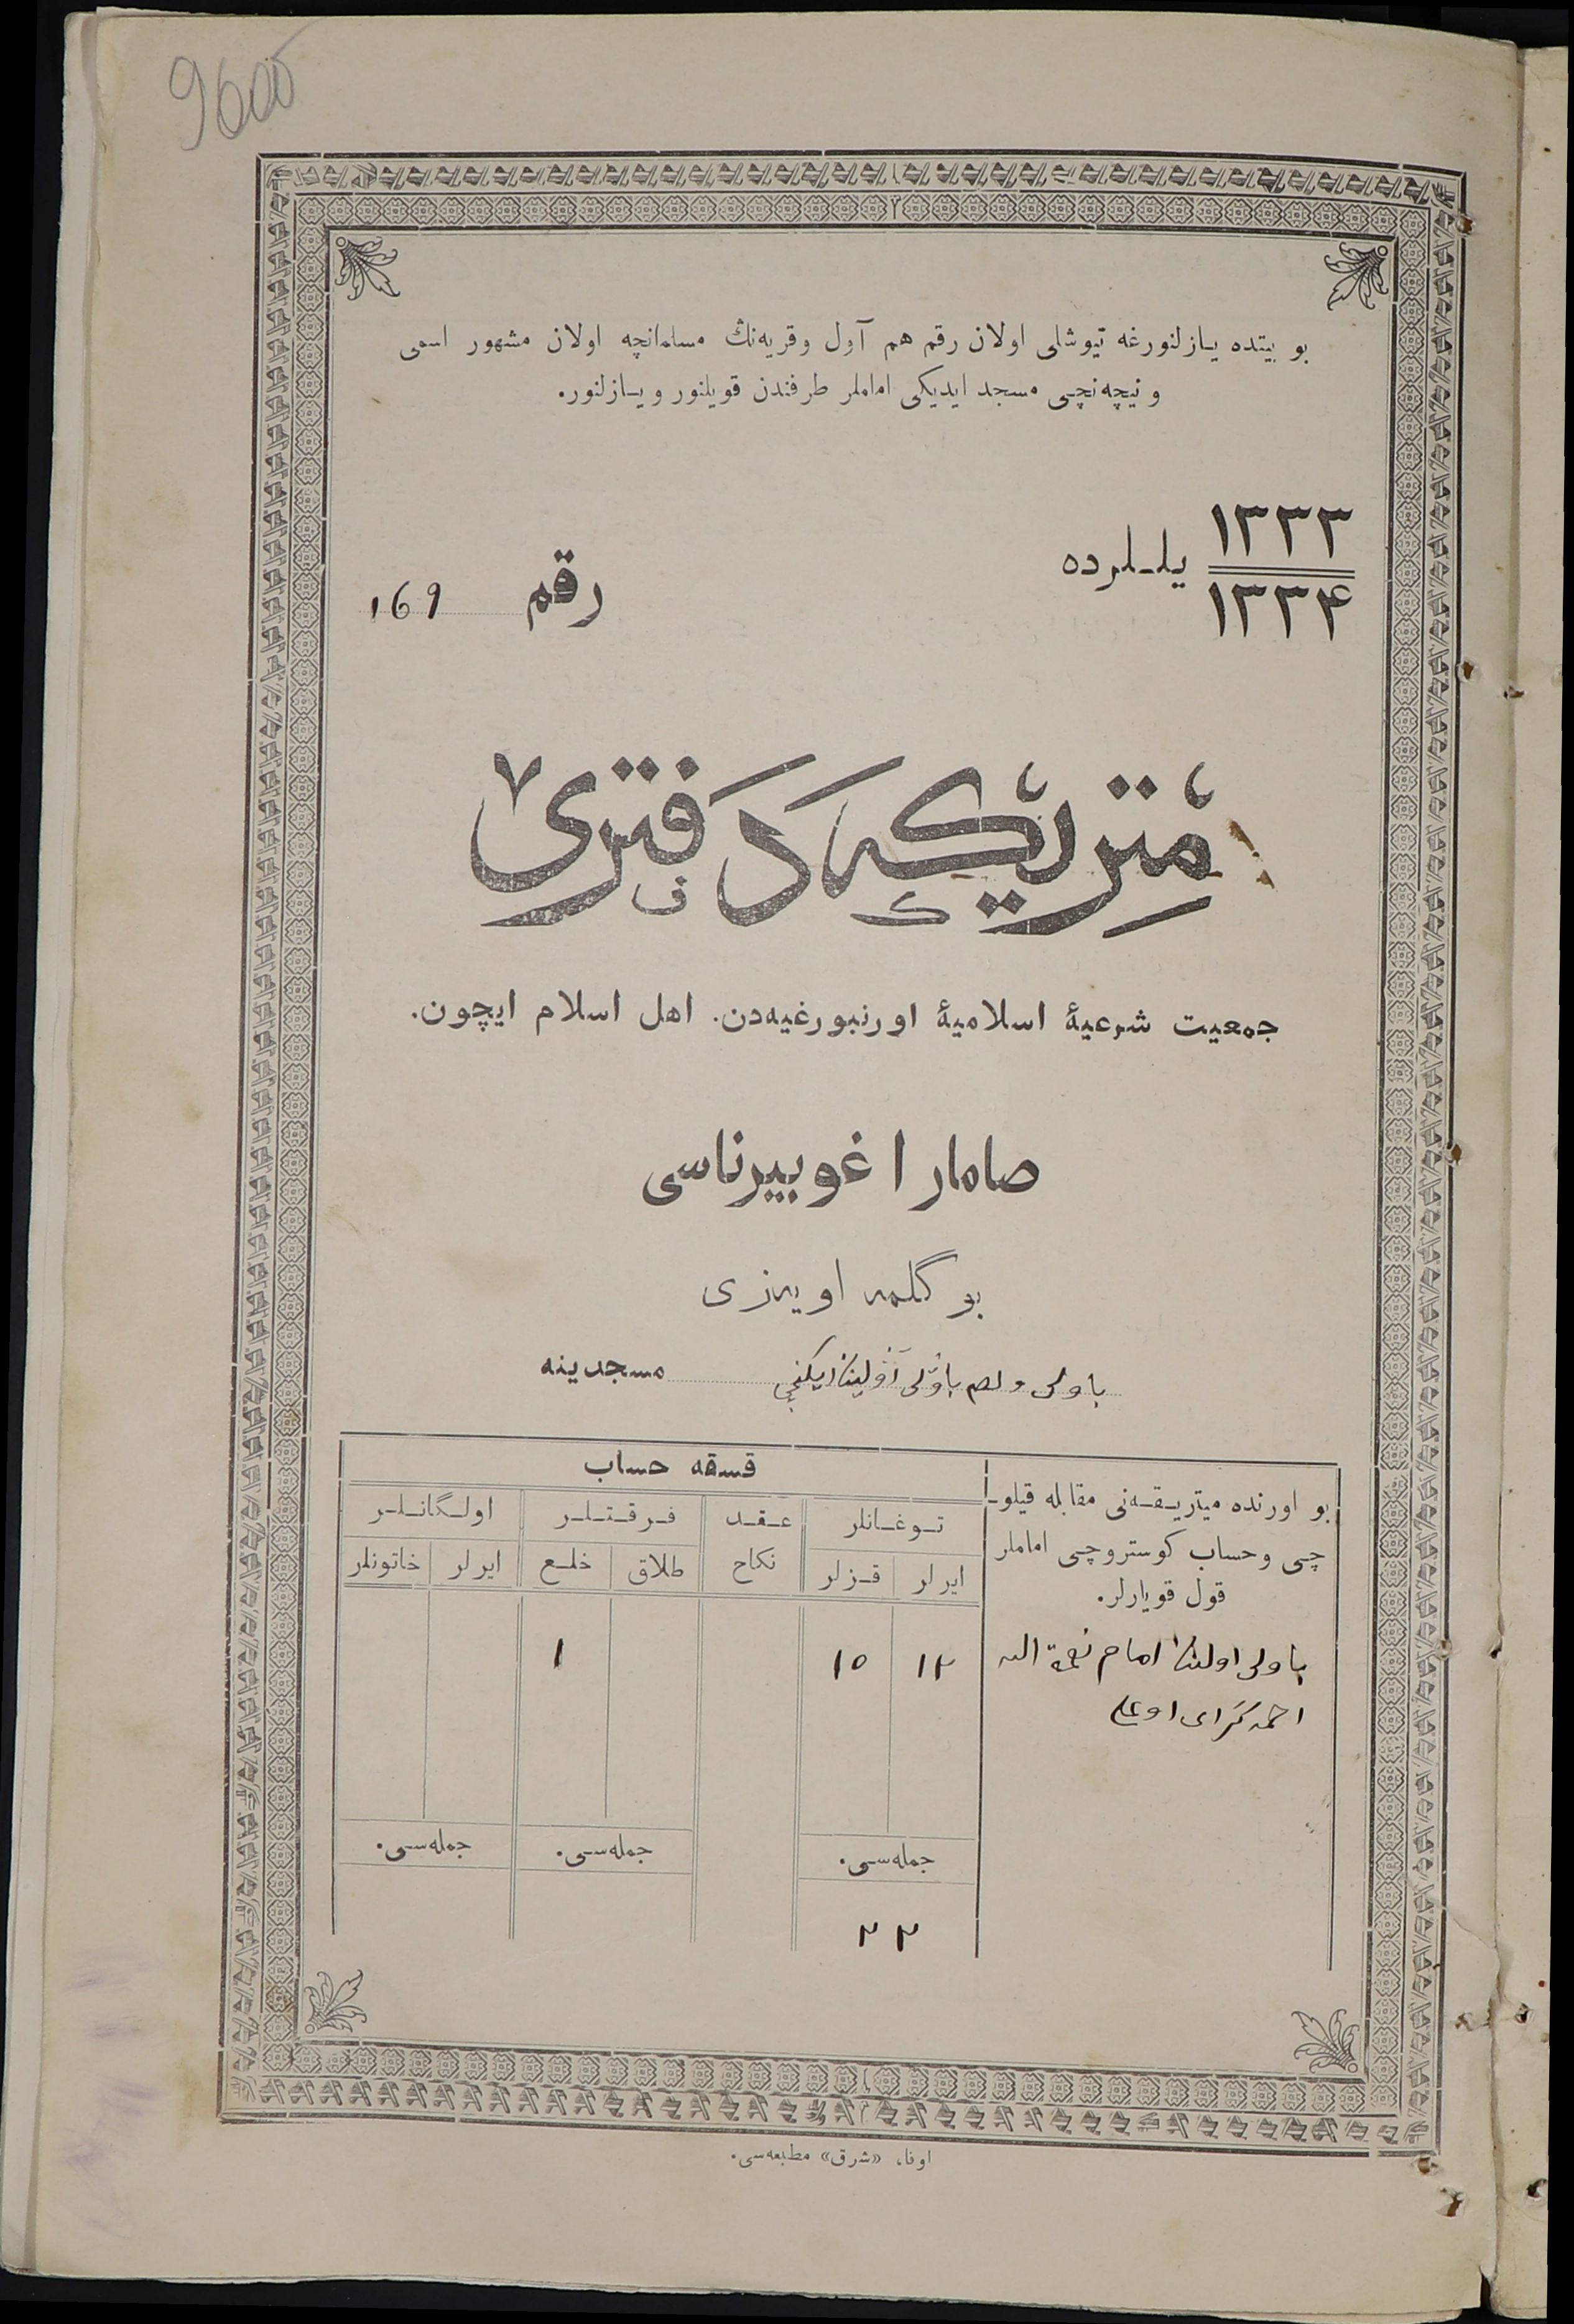 9600
بو بيتده يازلنورغه تيوشلى اولان رقم هم آول وقريه‌نڭ مسلمانچه اولان مشهور اسمى
و نيچه‌نچى مسجد ايديكى اماملر طرفندن قويلنور و يازلنور.
١٣٣٣
١٣٣۴
يللرده
رقم 169
مترىكه دفترى
جمعيت شرعيۀ اسلاميۀ اورنبورغيه‌دن. اهل اسلام ايچون.
صامارا غوبيرناسى
بوگلمه اويه‌زى
باولى ولصم باولى آولينڭ ايكنچى مسجدينه
قسقه حساب
بو اورنده ميتريقه‌نى مقابله قيلو-
چى وحساب كوستروچى اماملر
قول قويارلر.
توغانلر
عقد
نكاح
فرقتلر
اولگانلر
ايرلر
قزلر
طلاق
خلع
ايرلر
خاتونلر
باولى اولينڭ امام نعمة الله
احمدكراى اوغلى
١٢
١٥
١
جمله‌سى.
جمله‌سى.
جمله‌سى.
٢٢
اوفا، «شرق» مطبعه‌سى.